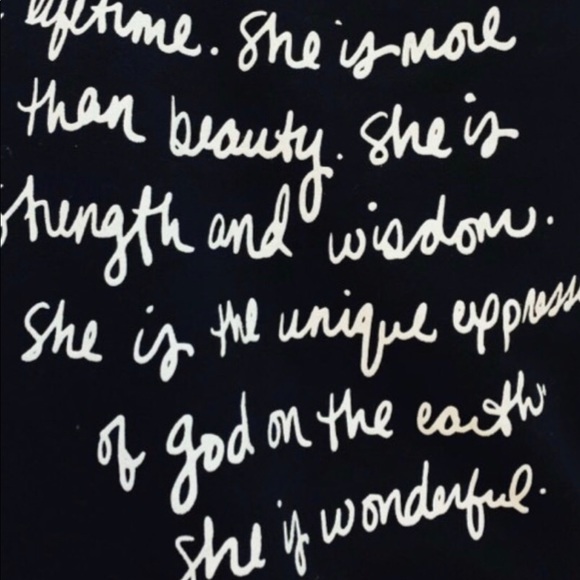 lifetime. She is more
than beauty. She is
strength and wisdom.
She is the unique express
of god on the earth
She is wonderful.